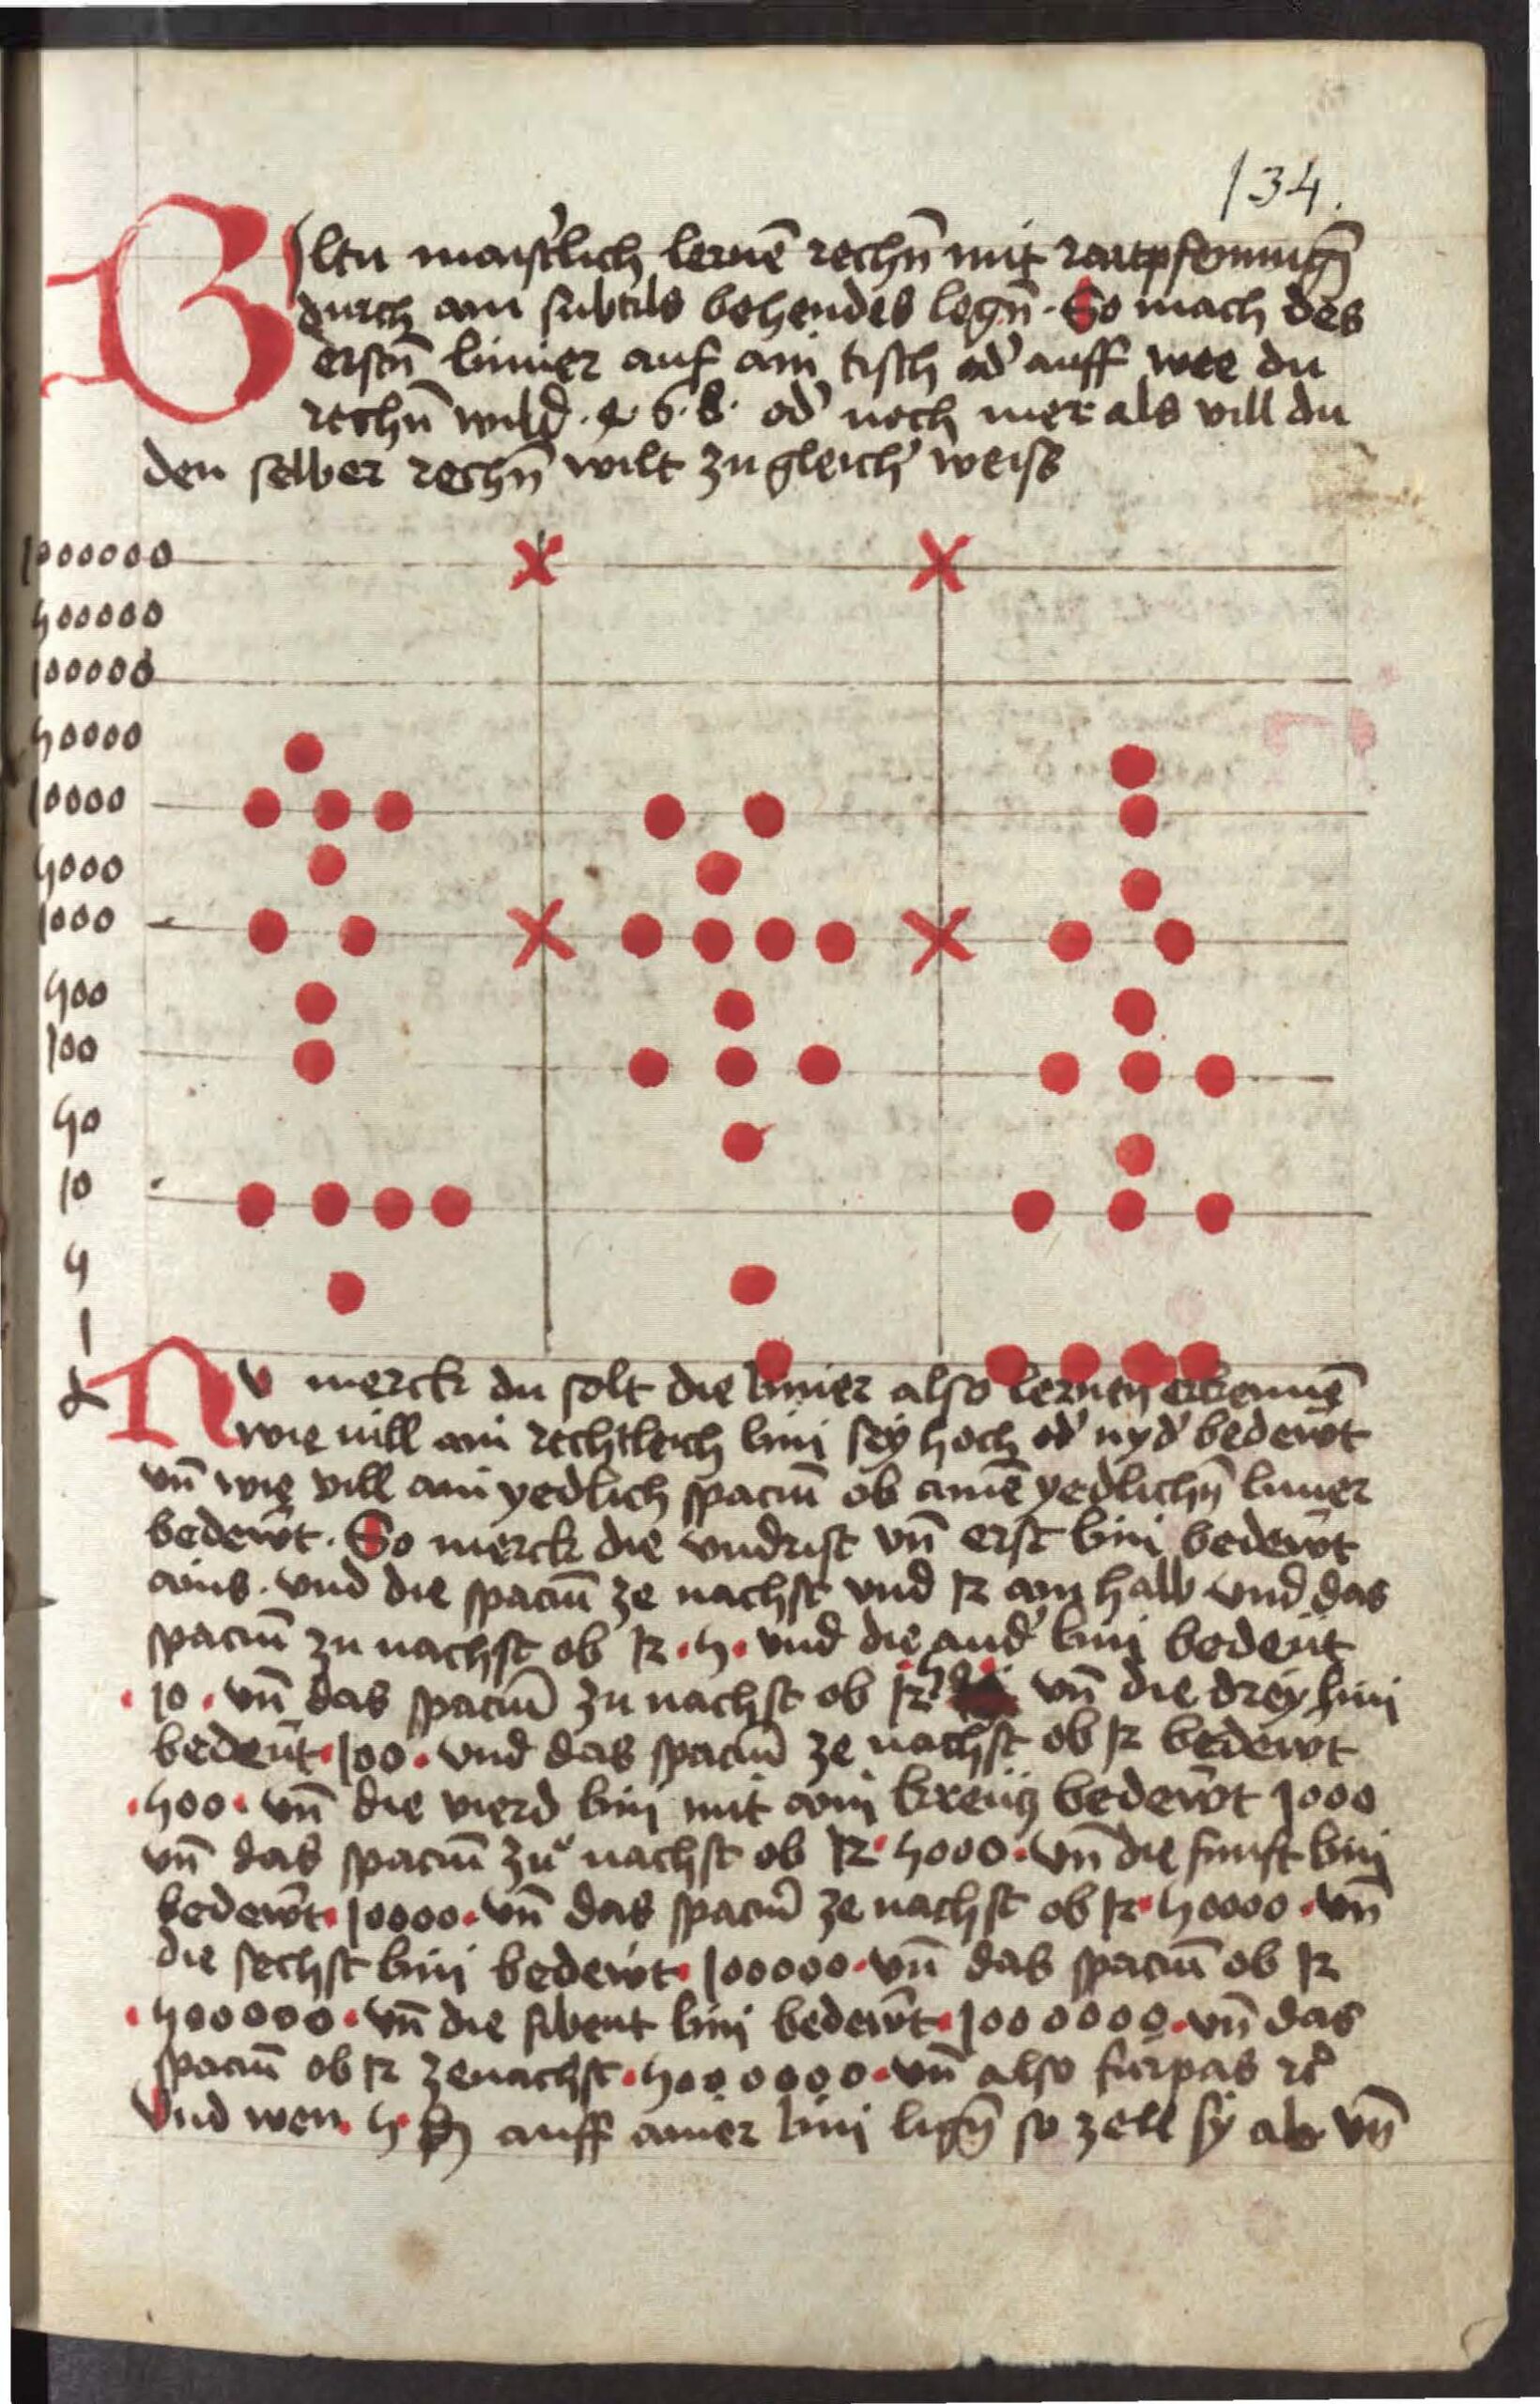 134.
Wiltu maist'lich lernē rechn̄ mit raitpfennīgn̄
durch ain subtils behendes legn̄. So mach des
ersten linier auf ain tisch od' auff wee du
rechn̄ wild. 4 6. 8. od' noch mer als vill du
den selber rechn̄ wilt zu gleich' weiss
1000000
500000
100000
50000
10000
5000
1000
500
100
50
10
5
1
Nv merck du solt die linier also lernen erkennē
wie uill ain rechtleich lini sey hoch od' nyd' bedewt
vn̄ wie vill ain yedlich spaciū ob ainē yedlichn̄ linier
bedewt. So merck die vndrist vn̄ erst lini bedewt
ains. vnd die spaciū ze nachst vnd ir ain halb vnd das
spaciū zu nachst ob ir .5. vnd die and' lini bedeut
.10. vn̄ das spaciū zu nachst ob ir 50 vn̄ die drey lini
bedeut .100. vnd das spaciū ze nachst ob ir bedewt
.500. vn̄ die vierd lini mit aim kreucz bedewt 1000
vn̄ das spaciū zu nachst ob ir 5000. vn̄ die funft lini
bedewt. 10000. vn̄ das spaciū ze nachst ob ir 50000. vn̄
die sechst lini bedewt. 100000. vn̄ das spaciū ob ir
.500000. vn̄ die sibent lini bedewt. 1000000. vn̄ das
spaciū ob ir zenachst. 5000000. vn̄ also furpas rc
Vnd wen. 5. auff ainer lini lign̄ so zell sy ab vn̄